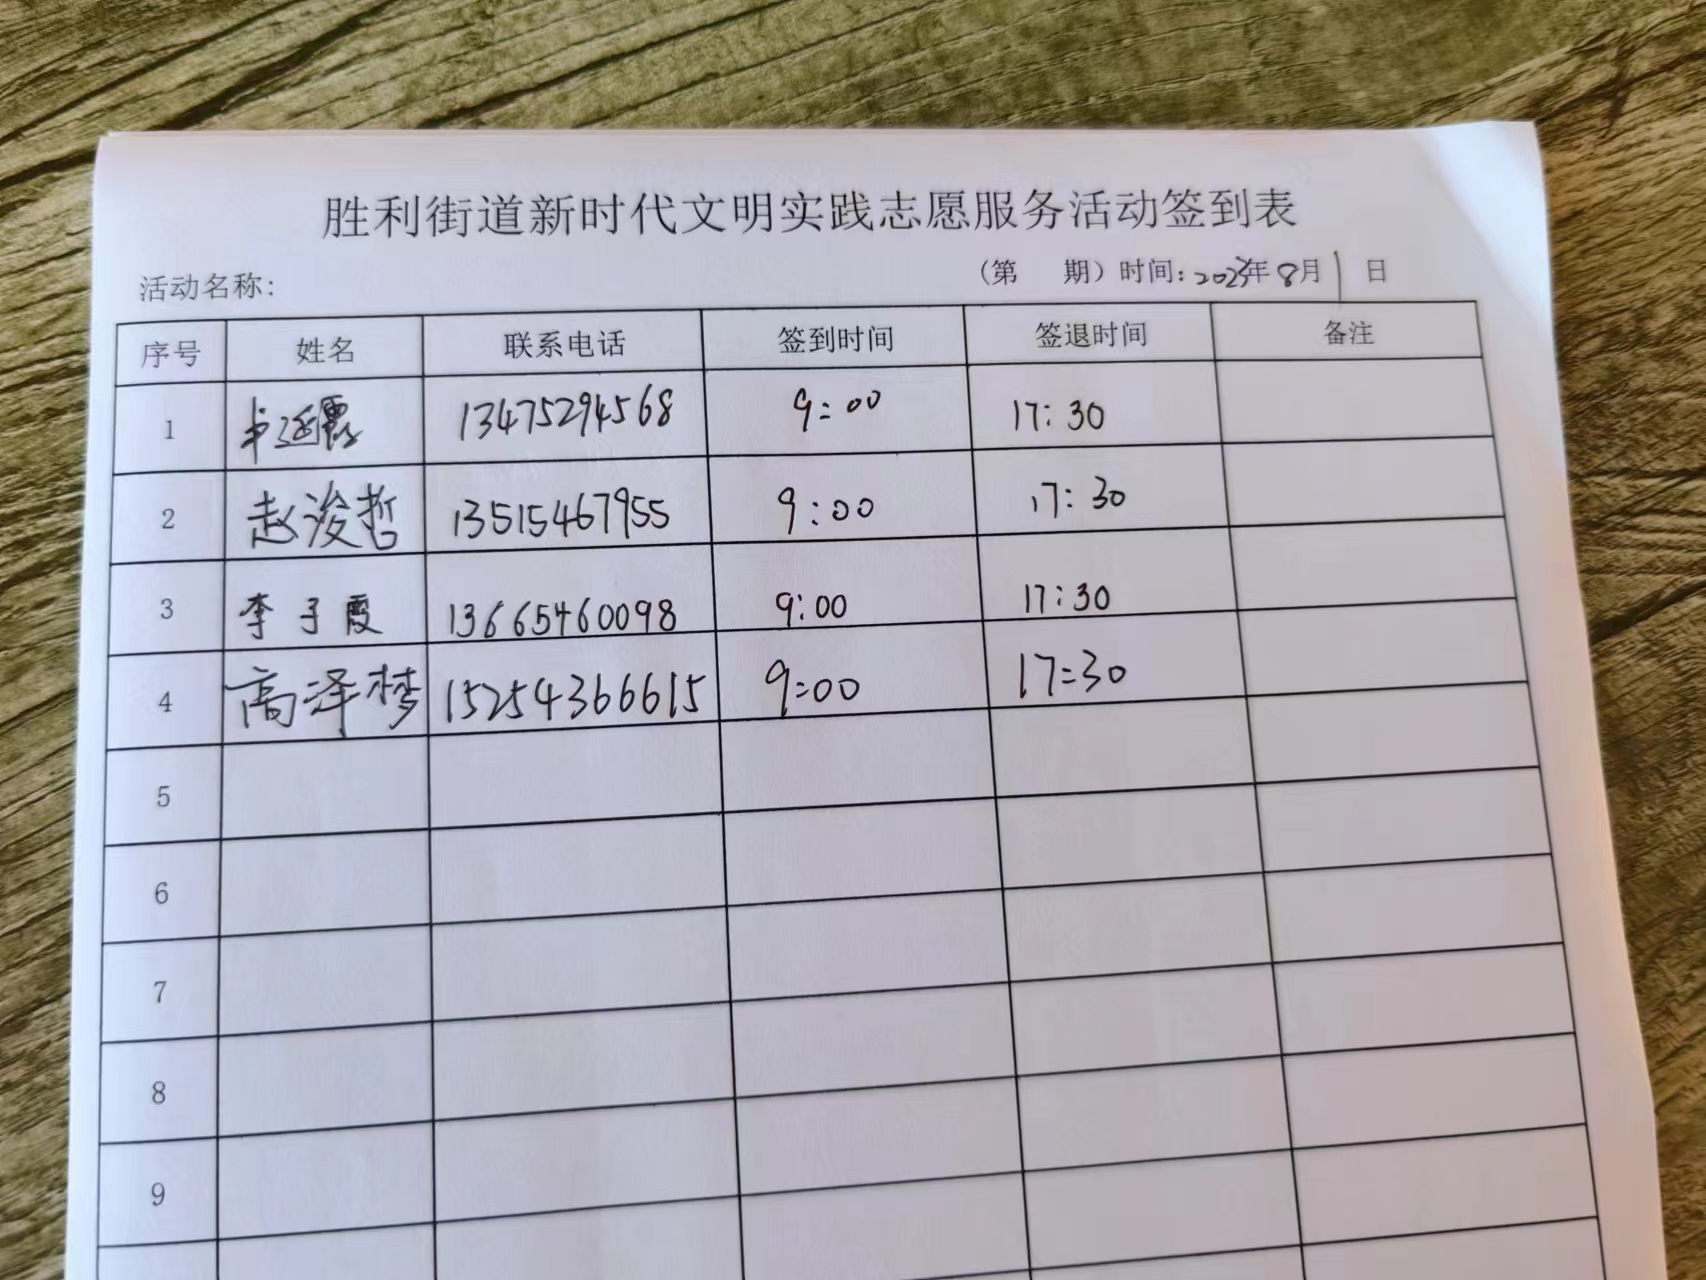 胜利街道新时代文明实践志愿服务活动签到表
活动名称: (第 期) 时间: 2023年8月1日
序号 姓名 联系电话 签到时间 签退时间 备注
1 13475294568 9:00 17:30
2 赵浚哲 13515467955 9:00 17:30
3 李子霞 13665460098 9:00 17:30
4 高泽梦 15254366615 9:00 17:30
5
6
7
8
9